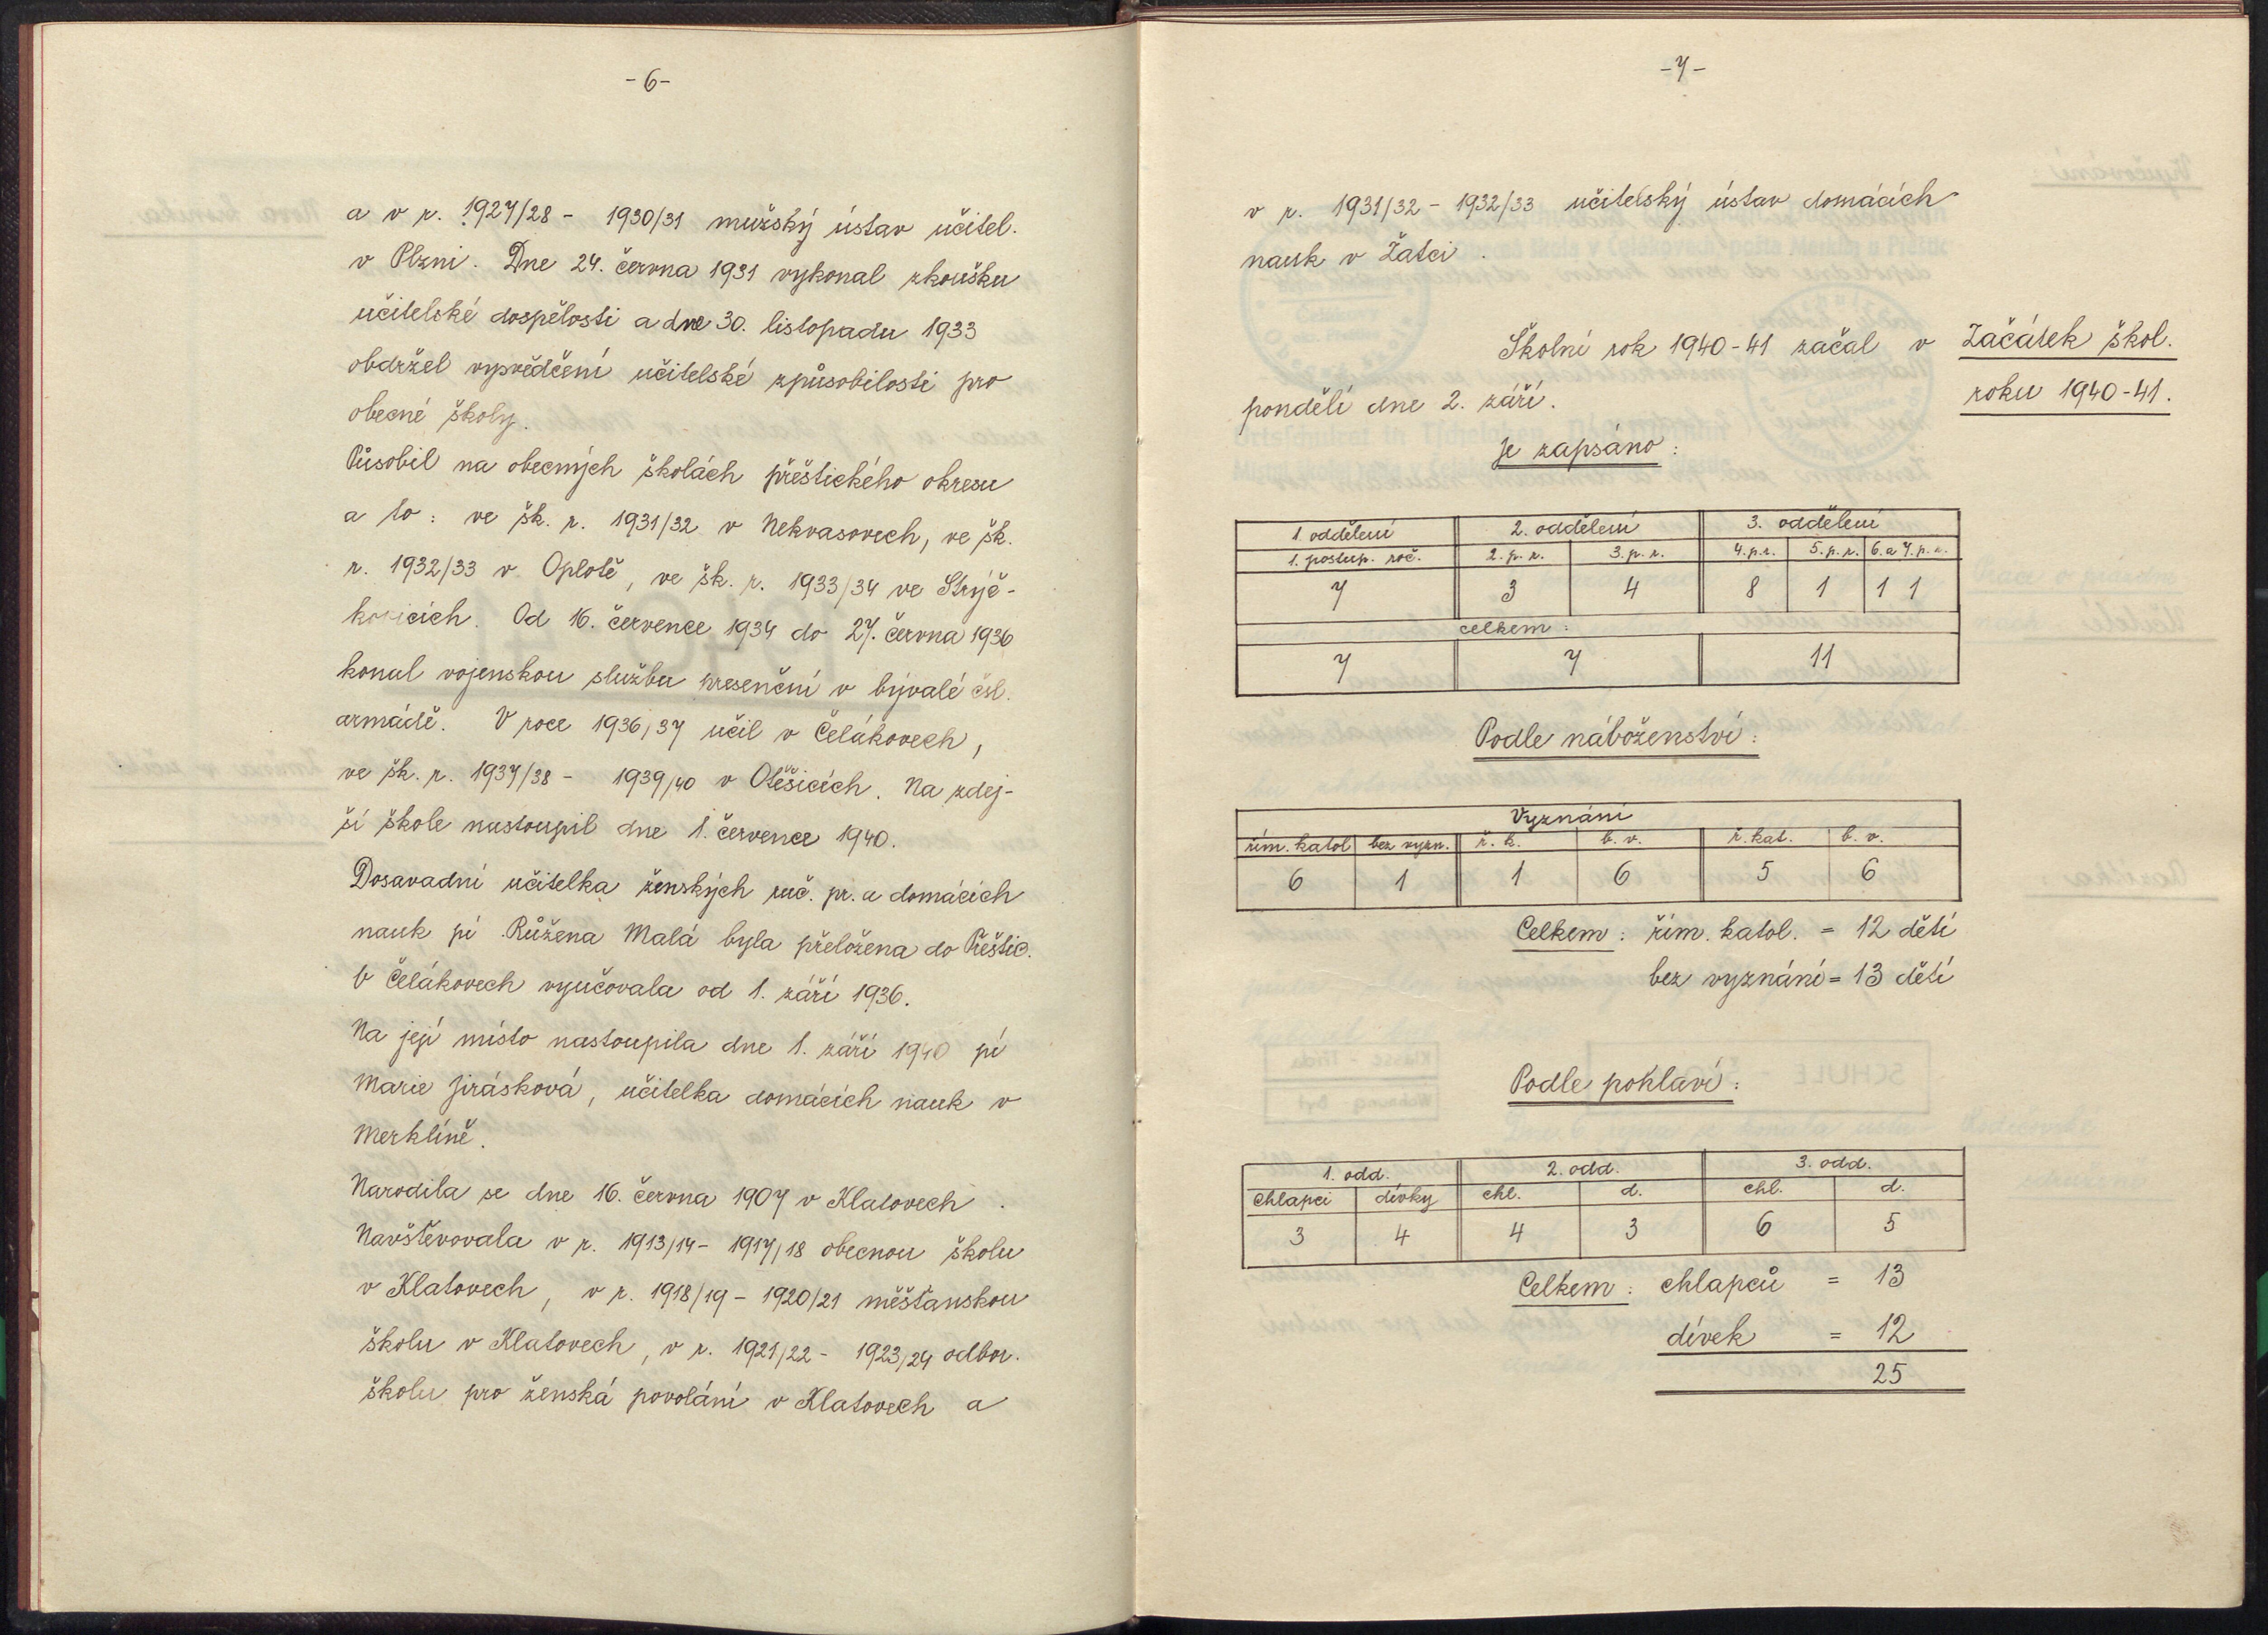 -6-
a v r. 1927/28 - 1930/31 mužský ústav učitel.
v Plzni. Dne 24. června 1931 vykonal zkoušku
učitelské dospělosti a dne 30. listopadu 1933
obdržel vysvědčení učitelské způsobilosti pro
obecné školy.
Působil na obecných školách přeštického okresu
a to: ve šk. r. 1931/32 v Nekvasovech, ve šk.
r. 1932/33 v Oplotě, ve šk. r. 1933/34 ve Strýč-
kovicích. Od 16. července 1934 do 27. června 1936
konal vojenskou službu presenční v bývalé čsl.
armádě. V roce 1936/37 učil v Čelákovech,
ve šk. r. 1937/38 - 1939/40 v Otěšicích. Na zdej-
ší škole nastoupil dne 1. července 1940.
Dosavadní učitelka ženských ruč. pr. a domácích
nauk pí Růžena Malá byla přeložena do Přeštic.
V Čelákovech vyučovala od 1. září 1936.
Na její místo nastoupila dne 1. září 1940 pí
Marie Jirásková, učitelka domácích nauk v
Merklíně.
Narodila se dne 16. června 1907 v Klatovech.
Navštěvovala v r. 1913/14 - 1917/18 obecnou školu
v Klatovech, v r. 1918/19 - 1920/21 měšťanskou
školu v Klatovech, v r. 1921/22 - 1923/24 odbor.
školu pro ženská povolání v Klatovech a
-7-
v r. 1931/32 - 1932/33 učitelský ústav domácích
nauk v Žatci.
Školní rok 1940-41 začal v
pondělí dne 2. září.
Začátek škol.
roku 1940-41.
Je zapsáno:
1. oddělení 2. oddělení 3. oddělení
1. postup. roč. 2. p. r. 3. p. r. 4. p. r. 5. p. r. 6. a 7. p. r.
7 3 4 8 1 1 1
celkem:
7 7 11
Podle náboženství:
Vyznání
řím. katol bez vyzn. ř. k. b. v. ř. kat. b. v.
6 1 1 6 5 6
Celkem: řím. katol. = 12 dětí
bez vyznání = 13 dětí
Podle pohlaví:
1. odd. 2. odd. 3. odd.
chlapci dívky chl. d. chl. d.
3 4 4 3 6 5
Celkem: chlapců = 13
dívek = 12
25